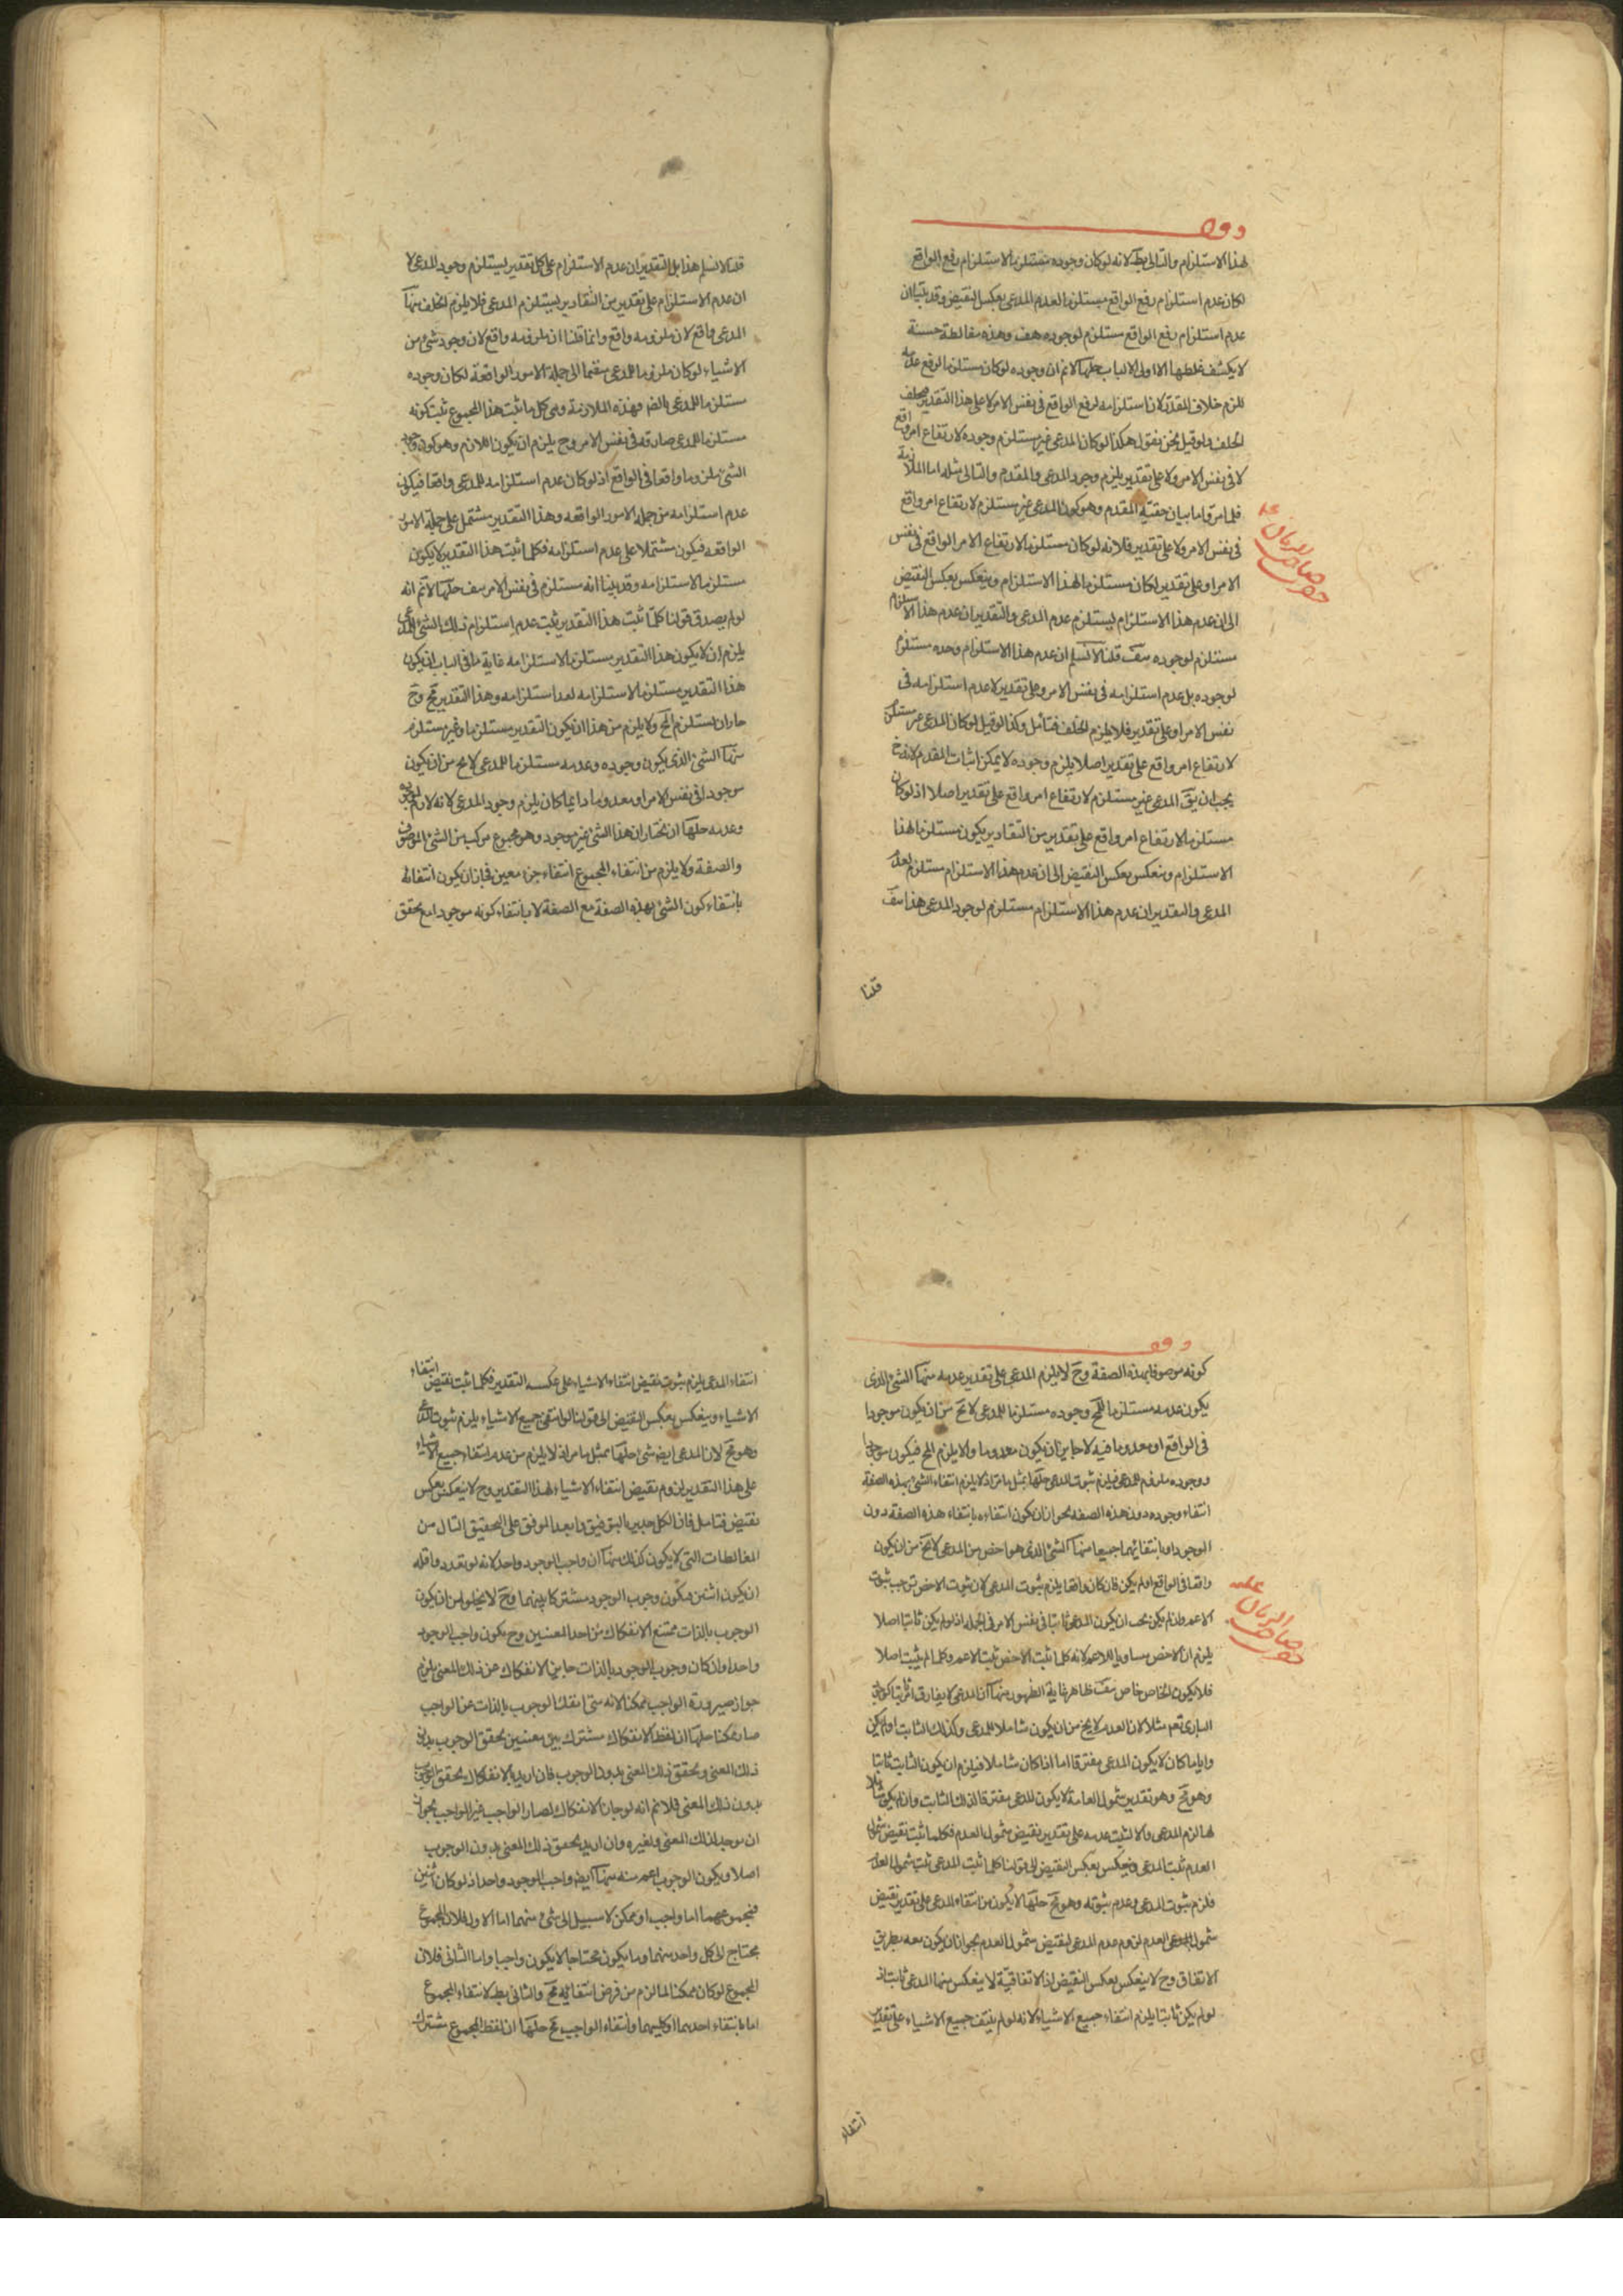 وقف
لهذا الاستلزام والتالى بط لانه لو كان وجوده مستلزما لاستلزام رفع الواقع
لكان عدم استلزام رفع الواقع مستلزما لعدم المدعى بعكس النقيض وقد بينا ان
عدم استلزام رفع الواقع مستلزم لوجوده هف وهذه مغالطة حسنة
لا يكشف غلطها الا اولى الالباب حلها لا نم ان وجوده لو كان مستلزما لرفع
للزم خلاف المقدر لان استلزامه لرفع الواقع فى نفس الامر لا على هذا التقدير
الخلف ولو قيل نحن نقول هكذا لو كان المدعى غير مستلزم وجوده لارتفاع امر واقع
لا فى نفس الامر ولا على تقدير يلزم وجود المدعى والمقدم والتالى مثله اما الملازمة
فلما مر واما بيان حقية المقدم وهو كون المدعى غير مستلزم لارتفاع امر واقع
فى نفس الامر ولا على تقدير فلانه لو كان مستلزما لارتفاع الامر الواقع فى نفس
الامر او على تقدير لكان مستلزما لهذا الاستلزام وينعكس بعكس النقيض
الى ان عدم هذا الاستلزام ليستلزم عدم المدعى والتقدير ان عدم هذا الاستلزام
مستلزم لوجوده هف قلنا لا نسلم ان عدم هذا الاستلزام وحده مستلزم
لوجوده بل عدم استلزامه فى نفس الامر وعلى تقدير لا عدم استلزامه فى
نفس الامر او على تقدير فلا يلزم الخلف فتأمل وكذا لو قيل لو كان المدعى غير مستلزم
لارتفاع امر واقع على تقدير اصلا يلزم وجوده لا يمكن اثبات المقدم لانه ح
يجب ان يق المدعى غير مستلزم لارتفاع امر واقع على تقدير اصلا اذ لو كان
مستلزما لارتفاع امر واقع على تقدير من التقادير يكون مستلزما لهذا
الاستلزام وينعكس بعكس النقيض الى ان عدم هذا الاستلزام مستلزم لعدم
المدعى والتقدير ان عدم هذا الاستلزام مستلزم لوجود المدعى هذا هف
قلنا
قلنا لا نسلم هذا بل التقدير ان عدم الاستلزام على كل تقدير ليستلزم وجود المدعى لا
ان عدم الاستلزام على تقدير من التقادير ليستلزم المدعى فلا يلزم الخلف منها
المدعى واقع لان ملزومه واقع وانما قلنا ان ملزومه واقع لان وجود شئ من
الاشياء لو كان ملزوما للمدعى منضما الى جملة الامور الواقعة لكان وجوده
مستلزما للمدعى بالضم وهذه الملازمة وهى كل ما ثبت هذا المجموع ثبت كونه
مستلزما للمدعى صادقه فى نفس الامر وح يلزم ان يكون اللازم وهو كون
الشئ ملزوما واقعا فى الواقع اذ لو كان عدم استلزامه للمدعى واقعا فيكون
عدم استلزامه من جمله الامور الواقعه وهذا التقدير مشتمل على جملة الامور
الواقعه فيكون مشتملا على عدم استلزامه فكلما ثبت هذا التقدير لا يكون
مستلزما لاستلزامه وقد بينا انه مستلزم فى نفس الامر هف حلها لا نم انه
لو لم يصدق قولنا كلما ثبت هذا التقدير ثبت عدم استلزام ذلك الشئ المدعى
يلزم ان لا يكون هذا التقدير مستلزما لاستلزامه غاية ما فى الباب ان يكون
هذا التقدير مستلزما لاستلزامه لعدم استلزامه وهذا التقدير مح وح
جاز ان يستلزم المح ولا يلزم من هذا ان يكون التقدير مستلزما وغير مستلزم
منها الشئ الذى يكون وجوده وعدمه مستلزما للمدعى لا يخ من ان يكون
موجودا فى نفس الامر او معدوما وايا ما كان يلزم وجود المدعى لانه لازم لوجوده
وعدمه حلها ان نختار ان هذا الشئ غير موجود وهو مجموع مركب من الشئ الموصوف
والصفة ولا يلزم من انتفاء المجموع انتفاء جزء معين فجاز ان يكون انتفائه
بانتفاء كون الشئ بهذه الصفة مع الصفة لا بانتفاء كونه موجودا مع تحقق
وقف
كونه موصوفا بهذه الصفة وح لا يلزم المدعى على تقدير عدمه منها الشئ الذى
يكون عدمه مستلزما للمح وجوده مستلزما للمدعى لا يخ من ان يكون موجودا
فى الواقع او معدوما فيه لا جايز ان يكون معدوما والا يلزم المح فيكون موجودا
ووجوده ملزوم للمدعى فيلزم ثبوت المدعى حلها بمثل ما مر اذ لا يلزم انتفاء الشئ بهذه الصفة
انتفاء وجوده دون هذه الصفه لجواز ان يكون انتفاءه بانتفاء هذه الصفة دون
الوجود او بانتفائهما جميعا منها الشئ الذى هو اخص من المدعى لا يخ من ان يكون
واقعا فى الواقع او لم يكن فان كان واقعا يلزم ثبوت المدعى لان ثبوت الاخص يوجب ثبوت
الاعم وان لم يكن يجب ان يكون المدعى ثابتا فى نفس الامر فى الجملة اذ لو لم يكن ثابتا اصلا
يلزم ان الاخص مساويا للاعم لانه كلما ثبت الاخص ثبت الاعم وكلما لم يثبت اصلا
فلا يكون الخاص خاص هف ظاهر غاية الظهور منها ان المدعى لا يفارق امرا ثابتا ككون
البارى تعم مثلا لان العدم لا يخ من ان يكون شاملا للمدعى وكذلك الثابت او لم يكن
وايا ما كان لا يكون المدعى مفترقا اما اذا كان شاملا فيلزم ان يكون الثابت ثابتا
وهو مح وهو تقدير شمول العامة لا يكون للمدعى مفترقا لذلك الثابت وان لم يكن شاملا
لهما لزم المدعى والا لثبت عدمه على تقدير نقيض شمول العدم فكلما ثبت نقيض شمول
العدم ثبت المدعى فينعكس بعكس النقيض الى قولنا كلما ثبت المدعى ثبت شمول العدم
فلزم ثبوت المدعى وعدم ثبوته وهو مح حلها لا يكون من انتفاء المدعى على تقدير نقيض
شمول العدم لزوم عدم المدعى لنقيض شمول العدم لجواز ان يكون معه بطريق
الاتفاق وح لا ينعكس بعكس النقيض اذ الاتفاقية لا ينعكس منها المدعى ثابت اذ
لو لم يكن ثابتا يلزم انتفاء جميع الاشياء لانه لو لم ينتف جميع الاشياء على تقدير
انتفاء
انتفاء المدعى يلزم ثبوت نقيض انتفاء الاشياء على عكسه التقدير فكلما ثبت نقيض انتفاء
الاشياء وينعكس بعكس النقيض الى قولنا لو انتفى جميع الاشياء يلزم ثبوت المدعى
وهو مح لان المدعى ايضا شئ حلها بمثل ما مر اذ لا يلزم من عدم انتفاء جميع الاشياء
على هذا التقدير لزوم نقيض انتفاء الاشياء لهذا التقدير وح لا ينعكس بعكس
نقيض فتامل فان الكل جدير بالتوفيق والله الموفق على التحقيق الثانى من
المغالطات التى لا يكون كذلك منها ان واجب الوجود واحد لانه لو تعدد واقله
ان يكون اثنين فيكون وجوب الوجود مشتركا بينهما وح لا يخلو من ان يكون
الوجوب بالذات ممتنع الانفكاك من احد المعنيين وح يكون واجب الوجود
واحدا وان كان وجوب الوجود بالذات جايز الانفكاك عن ذلك المعنى يلزم
جواز صيرورة الواجب ممكنا لانه متى انفك الوجوب بالذات عن الواجب
صار ممكنا حلها ان لفظ الانفكاك مشترك بين معنيين تحقق الوجوب بدون
ذلك المعنى وتحقق ذلك المعنى بدون الوجوب فان اريد بالانفكاك تحقق الوجوب
بدون ذلك المعنى فلا نم انه لو جاز الانفكاك لصار الواجب غير الواجب لجواز
ان يوجد لذلك المعنى ولغيره وان اريد تحقق ذلك المعنى بدون الوجوب
اصلا ويكون الوجوب اعم منه منها ايضا واجب الوجود واحد اذ لو كان اثنين
فمجموعهما اما واجب او ممكن لا سبيل الى شئ منهما اما الاول فلان المجموع
محتاج الى كل واحد منهما وما يكون محتاجا لا يكون واجبا واما الثانى فلان
المجموع لو كان ممكنا لما لزم من فرض انتفائه مح والثانى بط لانتفاء المجموع
اما بانتفاء احدهما او كليهما وانتفاء الواجب مح حلها ان لفظ المجموع مشترك